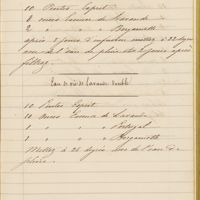 10 Pintes Esprit
8 onces Essence de Lavande
2 " " Bergamotte
après 8 jours d'infusion mettez à 22 degrés
avec de l'eau de pluie et 8 jours après
filtrez.
Eau de vie de Lavande double
10 Pintes Esprit
10 Onces Essence de Lavande
1 " " Portugal
1 " " Bergamotte
Mettez à 25 degrés avec de l'eau de
pluie.